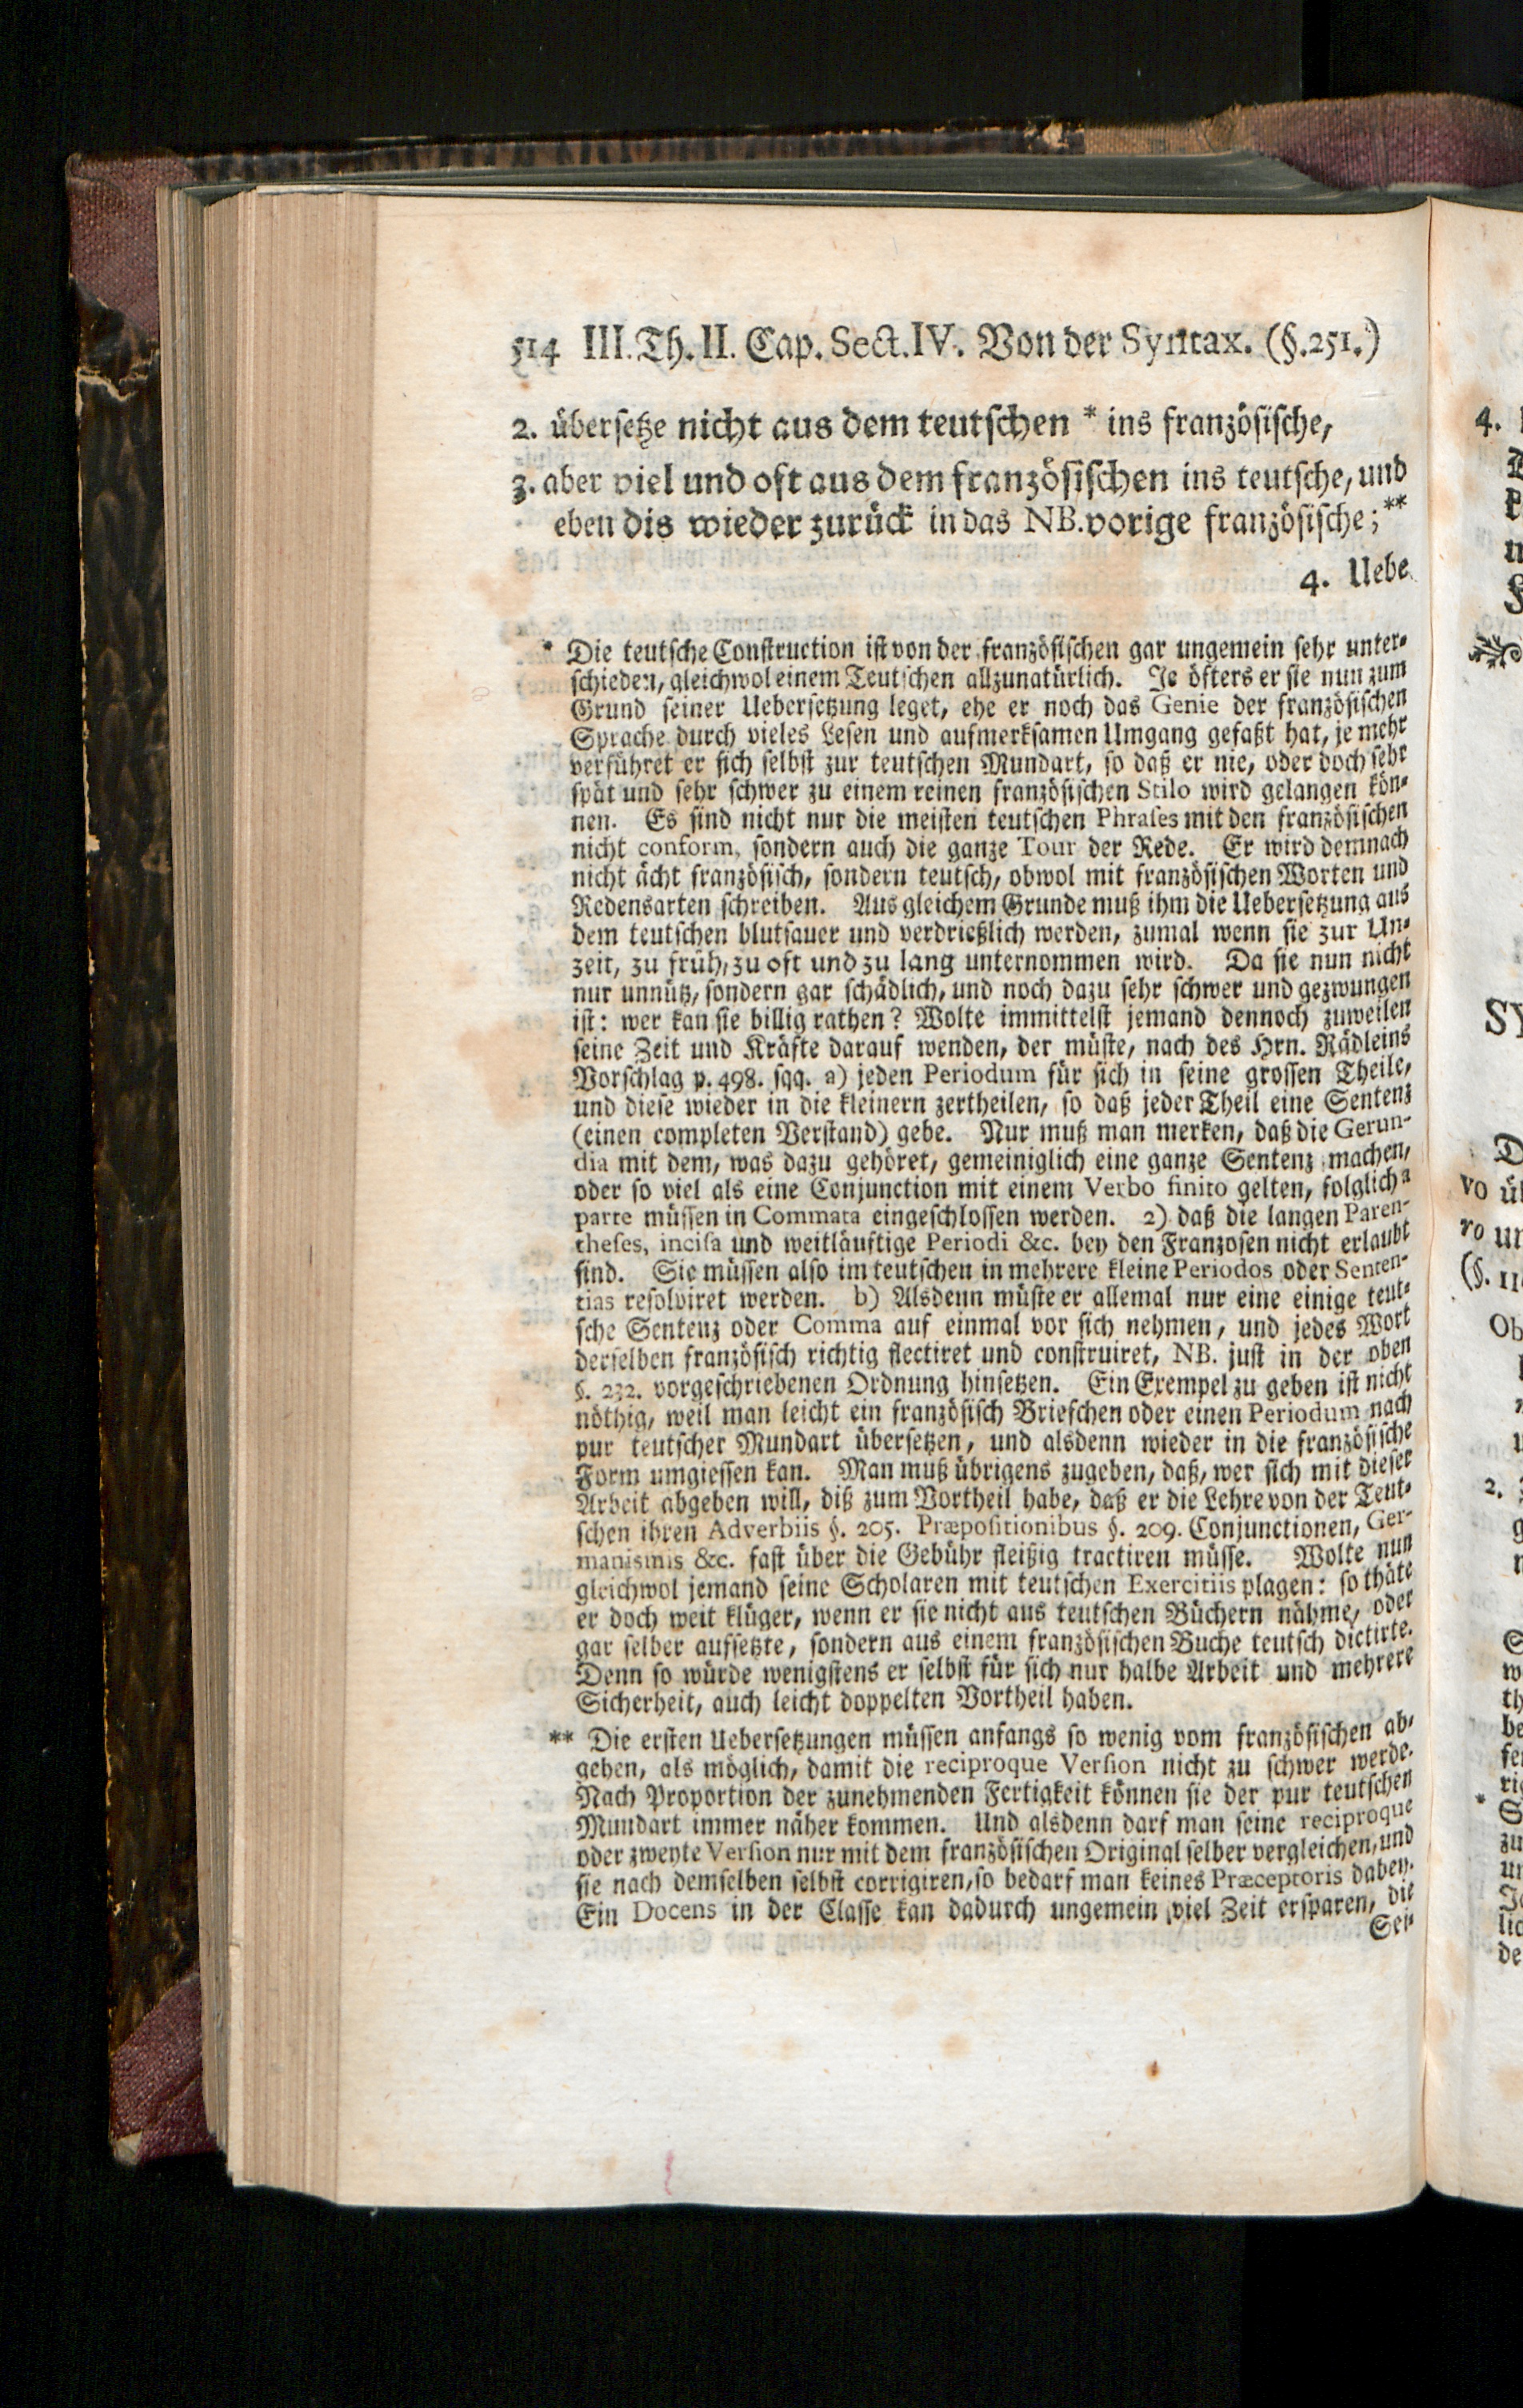 514 III. Th. II. Cap. Sect. IV. Von der Syntax. (§.251.)
2. übersetze nicht aus dem teutschen * ins französische,
3. aber viel und oft aus dem französischen ins teutsche, und
eben dis wieder zurück in das NB. vorige französische; **
4. Uebe
* Die teutsche Construction ist von der französischen gar ungemein sehr unter-
schieden, gleichwol einem Teutschen allzunatürlich. Je öfters er sie nun zum
Grund seiner Uebersetzung leget, ehe er noch das Genie der französischen
Sprache durch vieles Lesen und aufmerksamen Umgang gefaßt hat, je mehr
verführet er sich selbst zur teutschen Mundart, so daß er nie, oder doch sehr
spät und sehr schwer zu einem reinen französischen Stilo wird gelangen kön-
nen. Es sind nicht nur die meisten teutschen Phrases mit den französischen
nicht conform, sondern auch die ganze Tour der Rede. Er wird demnach
nicht ächt französisch, sondern teutsch, obwol mit französischen Worten und
Redensarten schreiben. Aus gleichem Grunde muß ihm die Uebersetzung aus
dem teutschen blutsauer und verdrießlich werden, zumal wenn sie zur Un-
zeit, zu früh, zu oft und zu lang unternommen wird. Da sie nun nicht
nur unnütz, sondern gar schädlich, und noch dazu sehr schwer und gezwungen
ist: wer kan sie billig rathen? Wolte immittelst jemand dennoch zuweilen
seine Zeit und Kräfte darauf wenden, der müste, nach des Hrn. Rädleins
Vorschlag p. 498. sqq. a) jeden Periodum für sich in seine grossen Theile,
und diese wieder in die kleinern zertheilen, so daß jeder Theil eine Sentenz
(einen completen Verstand) gebe. Nur muß man merken, daß die Gerun-
dia mit dem, was dazu gehöret, gemeiniglich eine ganze Sentenz machen,
oder so viel als eine Conjunction mit einem Verbo finito gelten, folglich a
parte müssen in Commata eingeschlossen werden. 2) daß die langen Paren-
theses, incisa und weitläuftige Periodi &c. bey den Franzosen nicht erlaubt
sind. Sie müssen also im teutschen in mehrere kleine Periodos oder Senten-
tias resolviret werden. b) Alsdenn müste er allemal nur eine einige teut-
sche Sentenz oder Comma auf einmal vor sich nehmen, und jedes Wort
derselben französisch richtig flectiret und construiret, NB. just in der oben
§. 232. vorgeschriebenen Ordnung hinsetzen. Ein Exempel zu geben ist nicht
nöthig, weil man leicht ein französisch Briefchen oder einen Periodum nach
pur teutscher Mundart übersetzen, und alsdenn wieder in die französische
Form umgiessen kan. Man muß übrigens zugeben, daß, wer sich mit dieser
Arbeit abgeben will, diß zum Vortheil habe, daß er die Lehre von der Teut-
schen ihren Adverbiis §. 205. Præpositionibus §. 209. Conjunctionen, Ger-
manismis &c. fast über die Gebühr fleißig tractiren müsse. Wolte nun
gleichwol jemand seine Scholaren mit teutschen Exercitiis plagen: so thäte
er doch weit klüger, wenn er sie nicht aus teutschen Büchern nähme, oder
gar selber aufsetzte, sondern aus einem französischen Buche teutsch dictirte.
Denn so würde wenigstens er selbst für sich nur halbe Arbeit und mehrere
Sicherheit, auch leicht doppelten Vortheil haben.
** Die ersten Uebersetzungen müssen anfangs so wenig vom französischen ab-
gehen, als möglich, damit die reciproque Version nicht zu schwer werde.
Nach Proportion der zunehmenden Fertigkeit können sie der pur teutschen
Mundart immer näher kommen. Und alsdenn darf man seine reciproque
oder zweyte Version nur mit dem französischen Original selber vergleichen, und
sie nach demselben selbst corrigiren, so bedarf man keines Præceptoris dabey.
Ein Docens in der Classe kan dadurch ungemein viel Zeit ersparen, die
Sei-